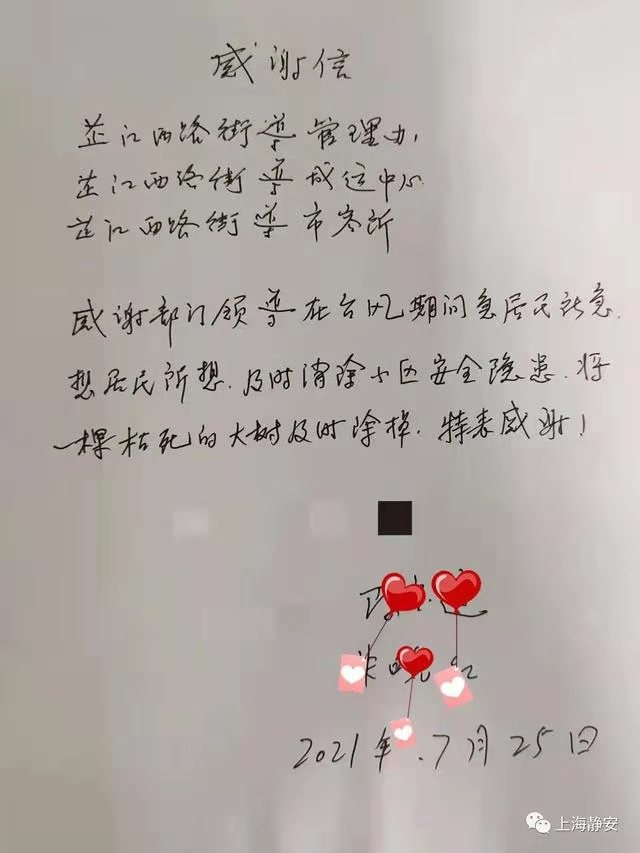 感谢信
芷江西路街道管理办,
芷江西路街道城运中心
芷江西路街道市容所
感谢部门领导在台风期间急居民所急.
想居民所想.及时消除小区安全隐患.将
一棵枯死的大树及时除掉.特表感谢!
2021年.7月25日
上海静安